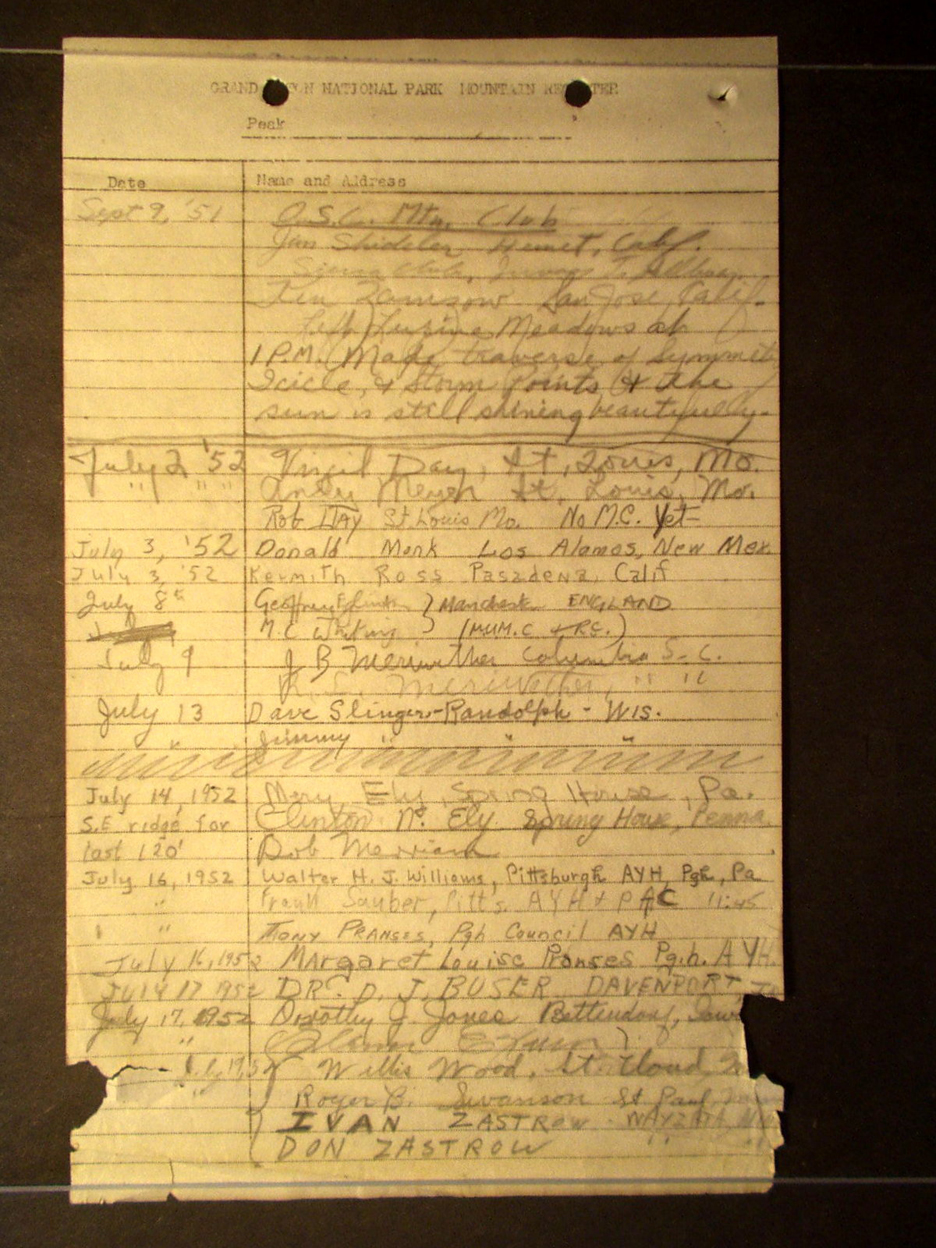 GRAND NATIONAL PARK MOUNTAIN REGISTER
Peak
Date Name and Address
Sept 9, '51 O.S.C. Mtn. Club
Jim Shideler Hemet, Calif.
Sierra Club,
San Jose, Calif.
Left Lupine Meadows at
1 P.M. Made traverse of Symmetry
Icicle, & Storm Points & the
sun is still shining beautifully.
July 2 '52 Virgil Day, St. Louis, Mo.
" " " " Andy Meyer St. Louis, Mo.
Rob Day St. Louis Mo. No M.C. Yet
July 3, '52 Donald Monk Los Alamos, New Mex.
July 3, '52 Kermith Ross Pasadena, Calif
July 8th Geoffrey } Manchester ENGLAND
M.C. Whiting } (M.U.M.C. & R.C.)
July 9 J B Meriwether Columbia S.C.
Meriwether, " "
July 13 Dave Slinger - Randolph - Wis.
Jimmy " " "
July 14, 1952 Mary Ely, Spring House, Pa.
S.E. ridge for Clinton Ely Spring House, Penna.
last 120' Bob Merriam
July 16, 1952 Walter H. J. Williams, Pittsburgh AYH, Pgh, Pa
" Frank Sauber, Pitts. AYH & PAC 11:45
" TONY PRANSES, Pgh Council AYH
July 16, 1952 Margaret Louise Pranses Pgh. AYH.
July 17 1952 DR. D. J. BUSER DAVENPORT
July 17, 1952 Dorothy J. Jones Bettendorf, Iowa
"
1952 { Willis Wood, St. Cloud,
" Roger B. Swanson St Paul,
IVAN ZASTROW - WAYZATA,
DON ZASTROW " "